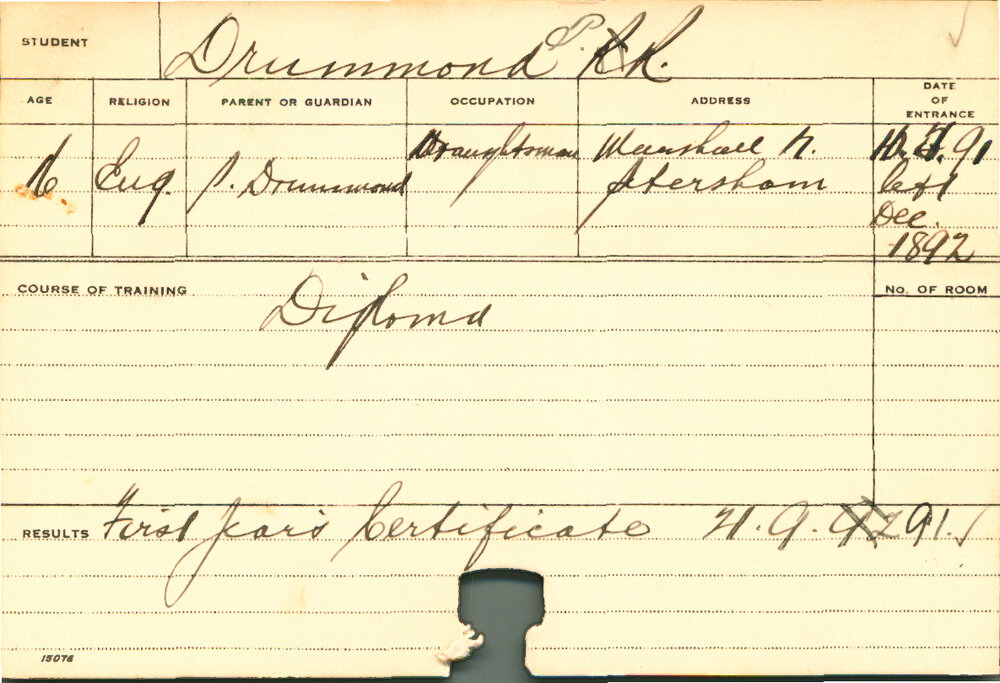 STUDENT Drummond P. R.
AGE RELIGION PARENT OR GUARDIAN OCCUPATION ADDRESS DATE OF ENTRANCE
16 Eng. P. Drummond Draughtsman Marshall St. 91
Petersham left
Dec.
1892
COURSE OF TRAINING Diploma No. OF ROOM
RESULTS First Year's Certificate 21.9.92 91.
15076